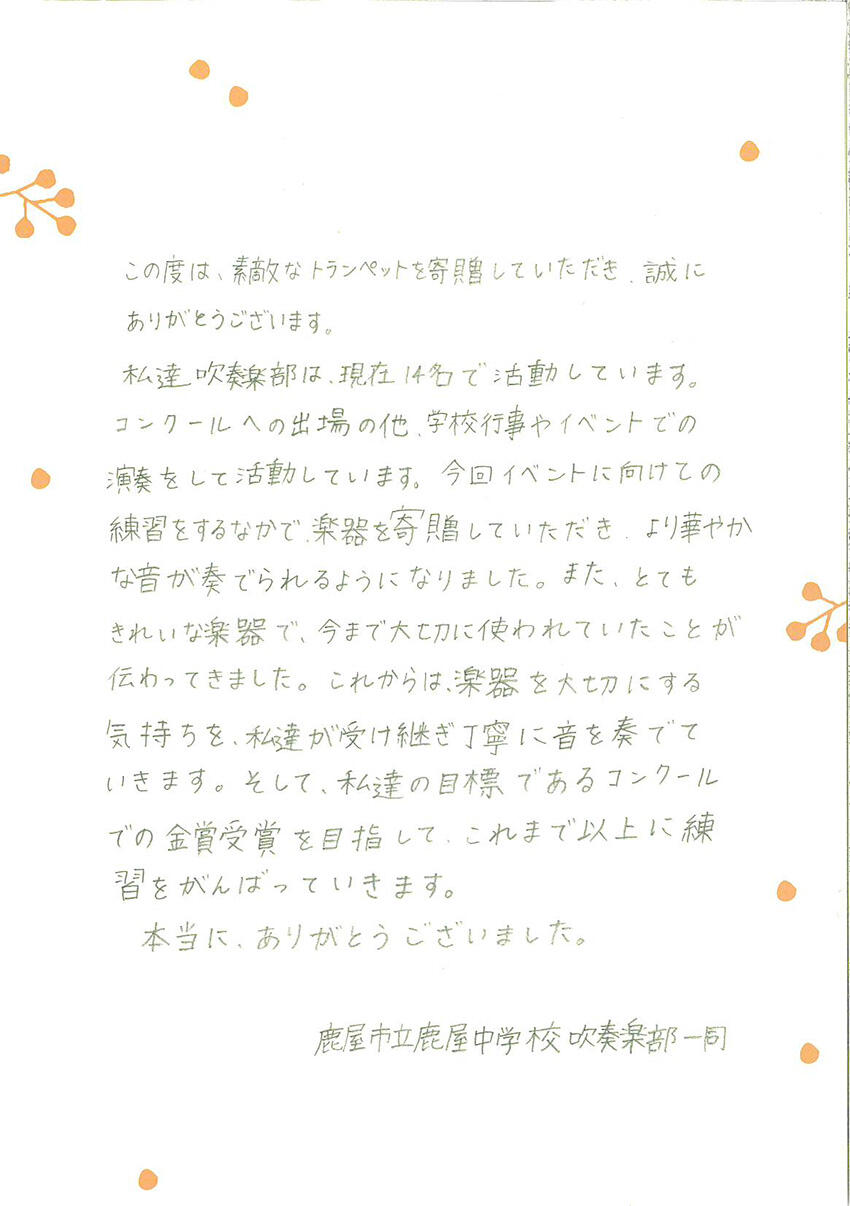 この度は、素敵なトランペットを寄贈していただき、誠に
ありがとうございます。
私達吹奏楽部は、現在14名で活動しています。
コンクールへの出場の他、学校行事やイベントでの
演奏をして活動しています。今回イベントに向けての
練習をするなかで、楽器を寄贈していただき、より華やか
な音が奏でられるようになりました。また、とても
きれいな楽器で、今まで大切に使われていたことが
伝わってきました。これからは、楽器を大切にする
気持ちを、私達が受け継ぎ丁寧に音を奏でて
いきます。そして、私達の目標であるコンクール
での金賞受賞を目指して、これまで以上に練
習をがんばっていきます。
本当に、ありがとうございました。
鹿屋市立鹿屋中学校吹奏楽部一同